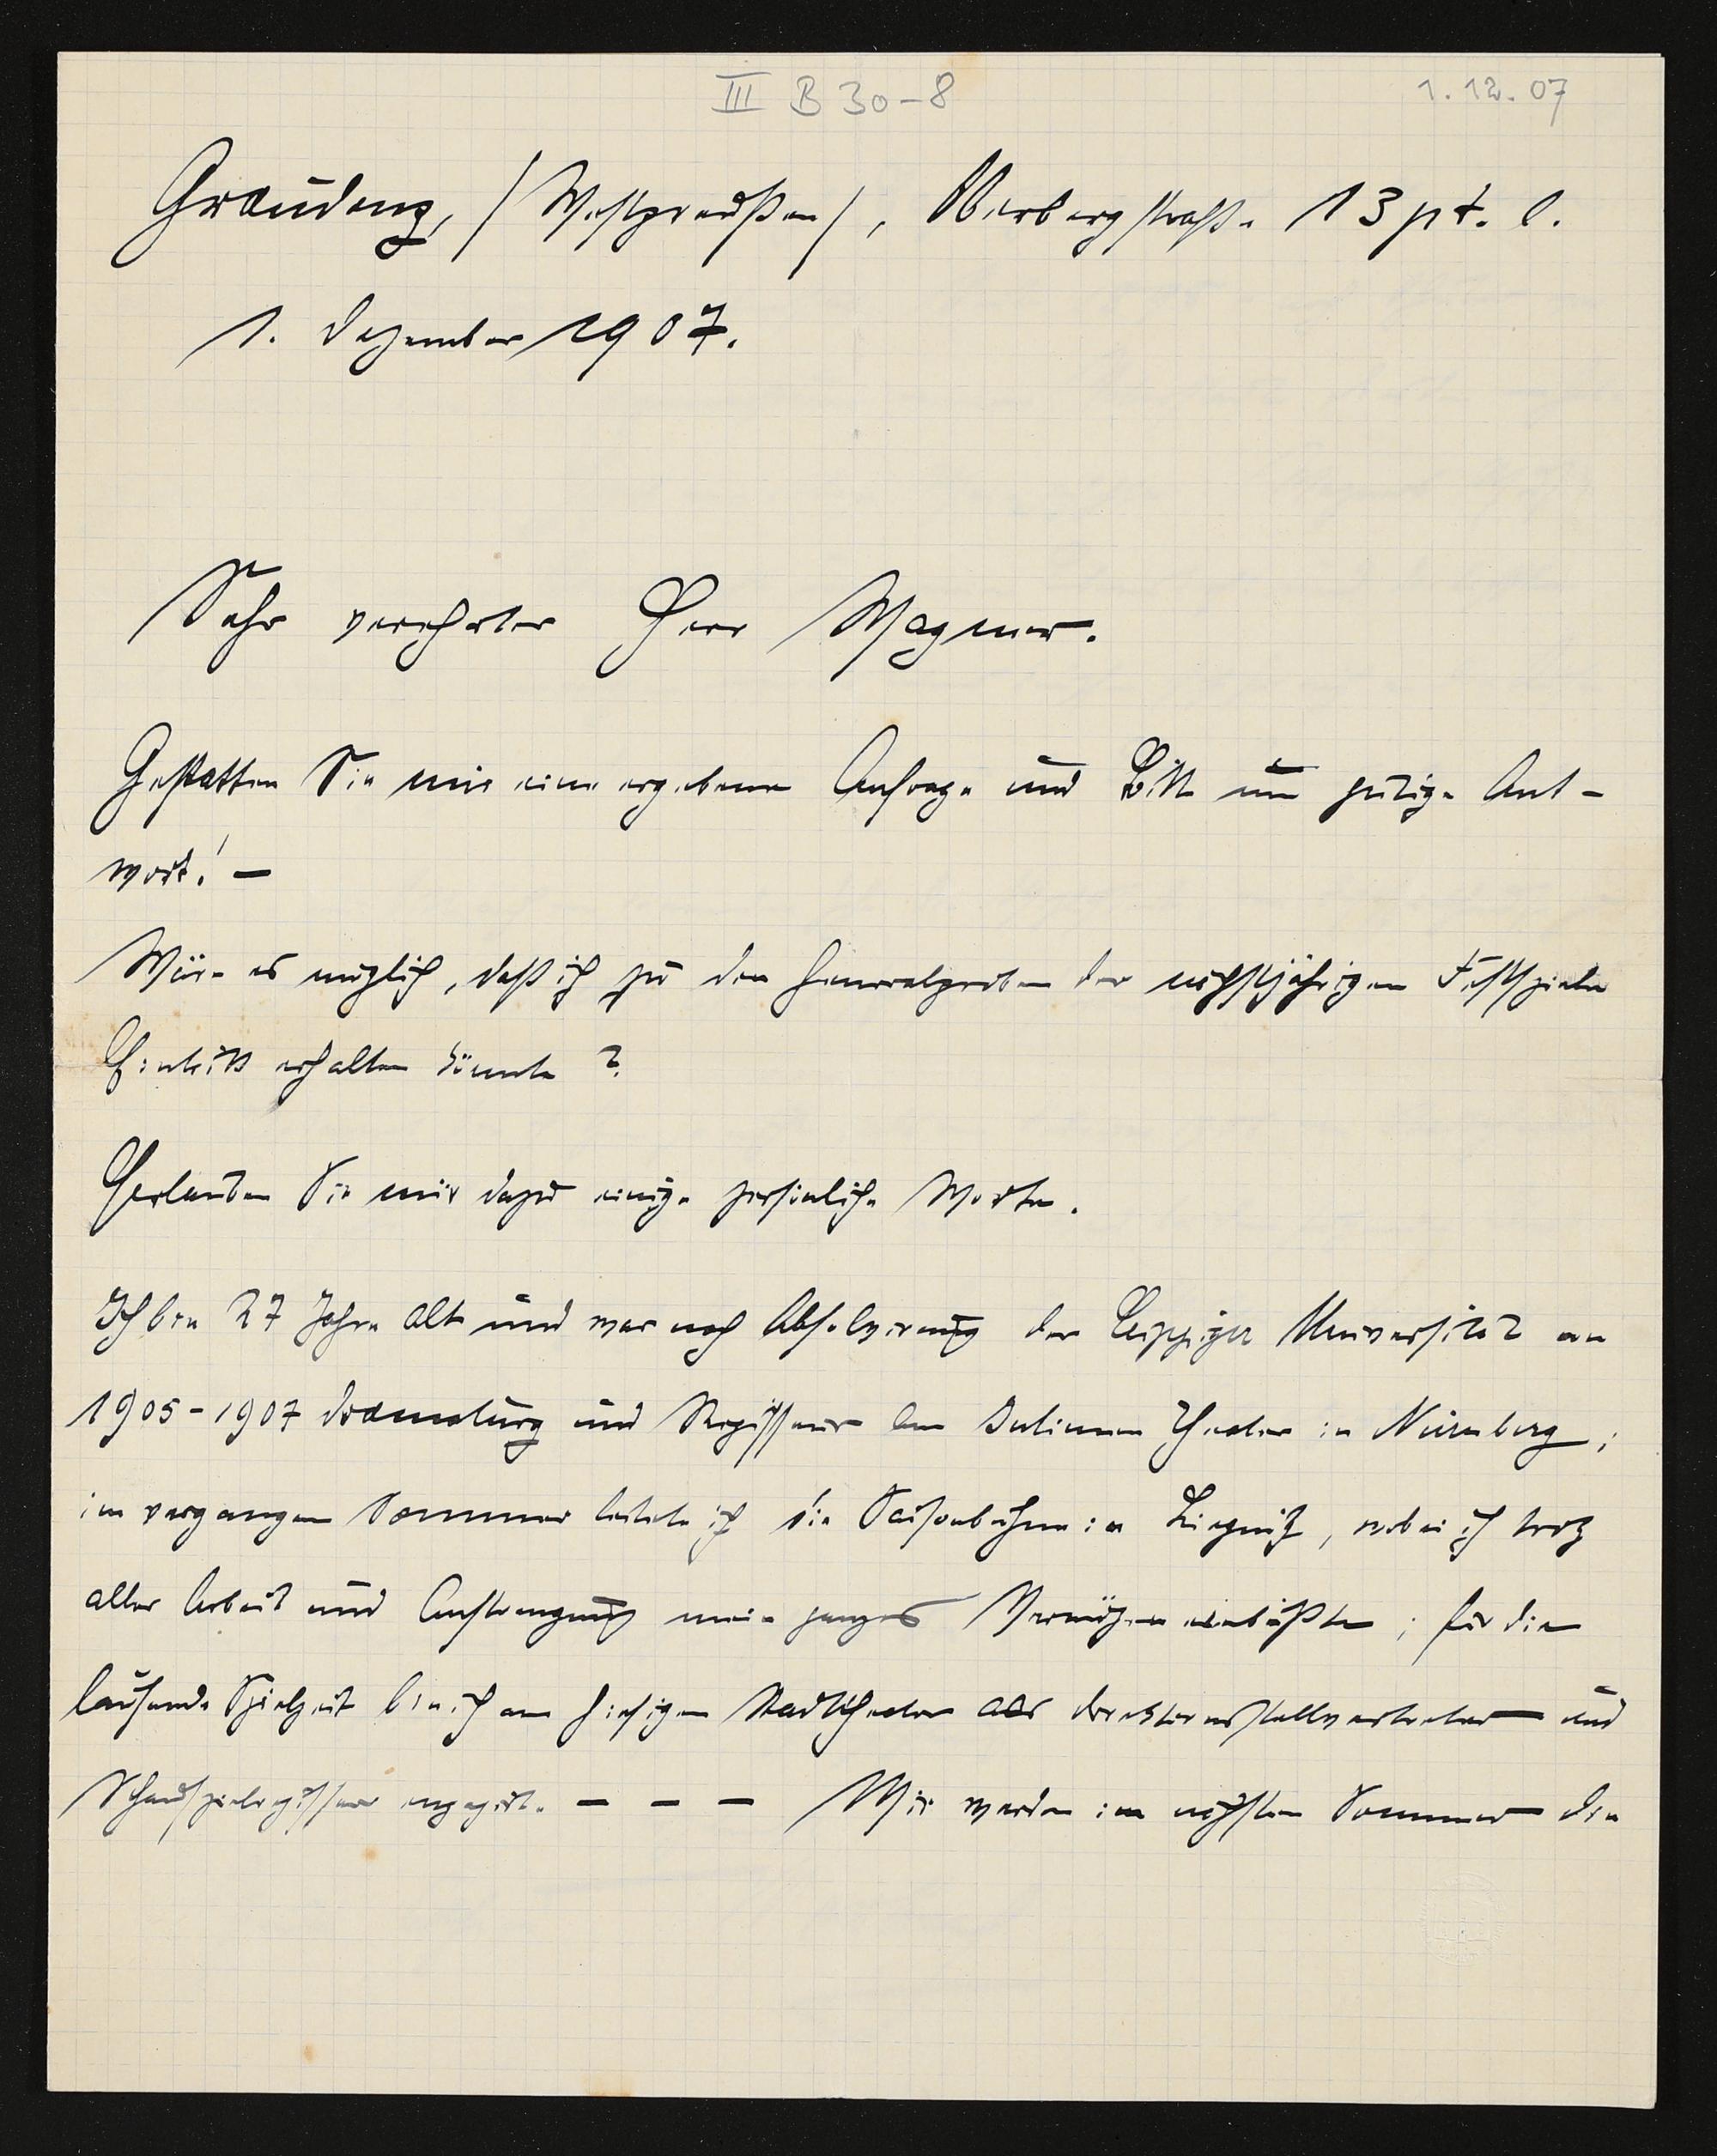 III B 30-8
1.12.07
Graudenz, (Westpreußen), Oberbergstraße 13 pt. l.
1. Dezember 1907.
Sehr verehrter Herr Wagner.
Gestatten Sie mir eine ergebene Anfrage und Bitte um gütige Ant-
wort! —
Wäre es möglich, daß ich zu den Generalproben der nächstjährigen Festspiele
Eintritt erhalten könnte?
Erlauben Sie mir dazu einige persönliche Worte.
Ich bin 27 Jahre alt und war nach Absolvierung der Leipziger Universität von
1905-1907 Dramaturg und Regisseur am Intimen Theater in Nürnberg;
im vergangen Sommer leitete ich die Saisonbühne in Liegnitz, wobei ich trotz
aller Arbeit und Anstrengung mein ganzes Vermögen einbüßte; für die
laufende Spielzeit bin ich am hiesigen Stadttheater als Direktionsstellvertreter und
Schauspielregisseur engagirt. — — — Wir werden im nächsten Sommer den